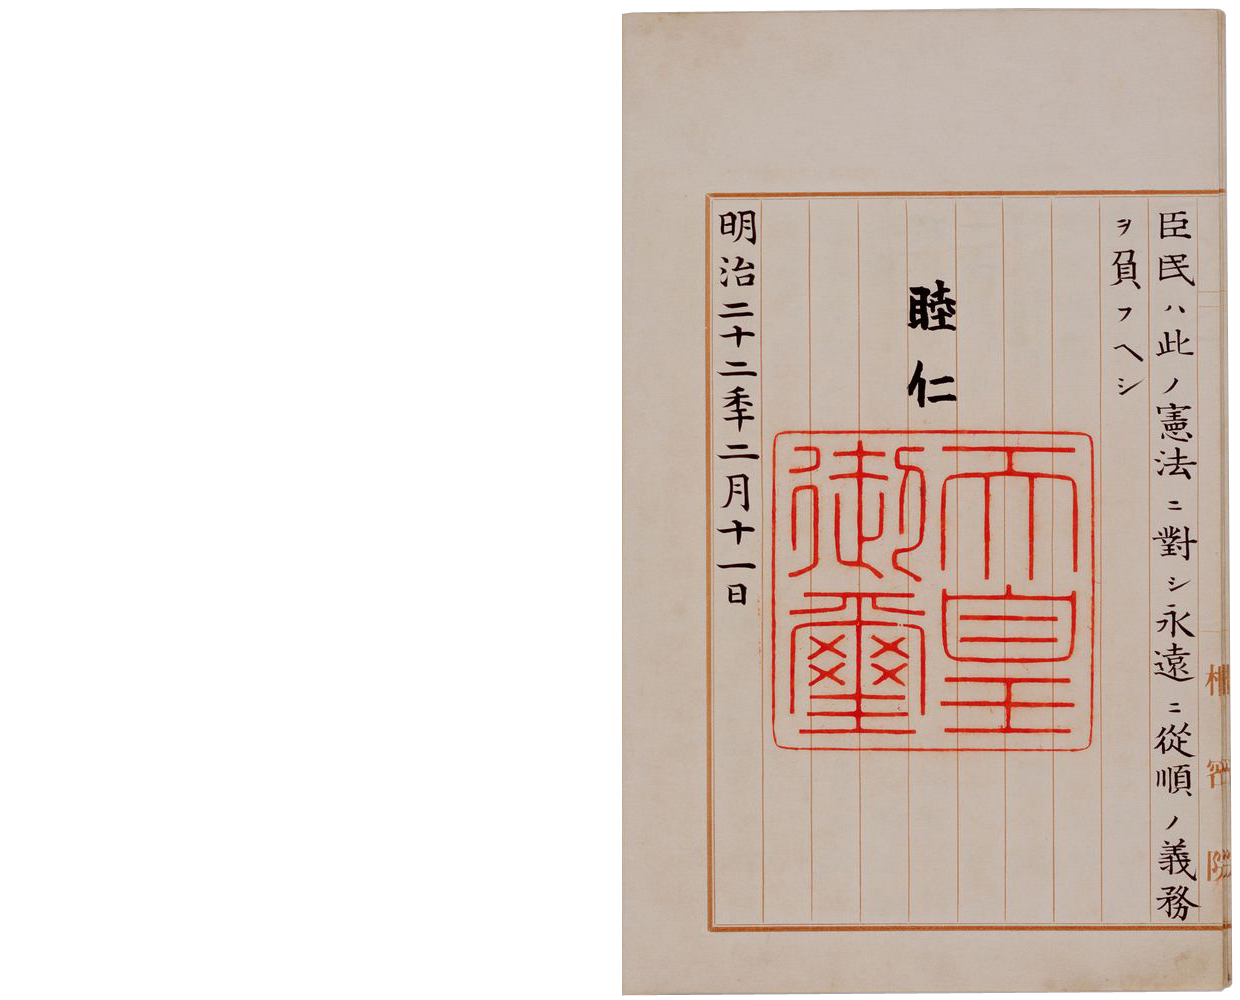 臣民ハ此ノ憲法ニ對シ永遠ニ從順ノ義務
ヲ負フヘシ
睦仁
天皇
御璽
明治二十二年二月十一日
樞密院